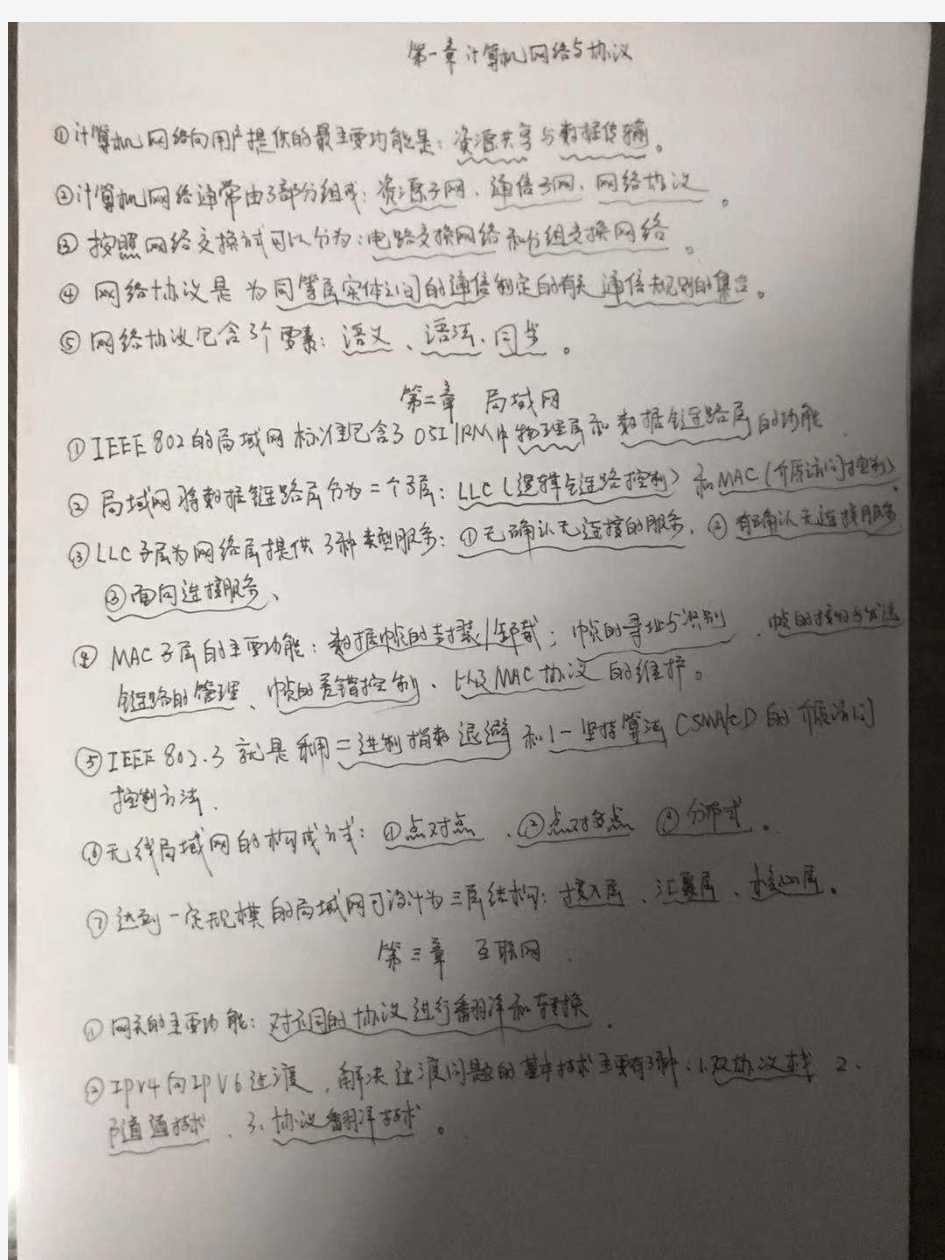 第一章 计算机网络与协议
①计算机网络向用户提供的最主要功能是：资源共享与数据传输。
②计算机网络通常由3部分组成：资源子网、通信子网、网络协议。
③按照网络交换方式可以分为：电路交换网络和分组交换网络。
④网络协议是为同等层实体之间的通信制定的有关通信规则的集合。
⑤网络协议包含3个要素：语义、语法、同步。
第二章 局域网
①IEEE 802的局域网标准包含了OSI/RM中物理层和数据链路层的功能
②局域网将数据链路层分为二个子层：LLC（逻辑链路控制）和MAC（介质访问控制）
③LLC子层为网络层提供3种类型服务：①无确认无连接的服务、②有确认无连接服务
③面向连接服务、
④MAC子层的主要功能：数据帧的封装/卸载；帧的寻址与识别、帧的接收与发送
链路的管理、帧的差错控制、以及MAC协议的维护。
⑤IEEE 802.3就是利用二进制指数退避和1-坚持算法CSMA/CD的介质访问
控制方法.
⑥无线局域网的构成方式：①点对点、②点对多点 ③分布式。
⑦达到一定规模的局域网可设计为三层结构：接入层、汇聚层、核心层。
第三章 互联网
①网关的主要功能：对不同的协议进行翻译和转换.
②IPV4向IPV6过渡，解决过渡问题的基本技术主要有3种、1.双协议栈 2、
隧道技术、3、协议翻译技术。